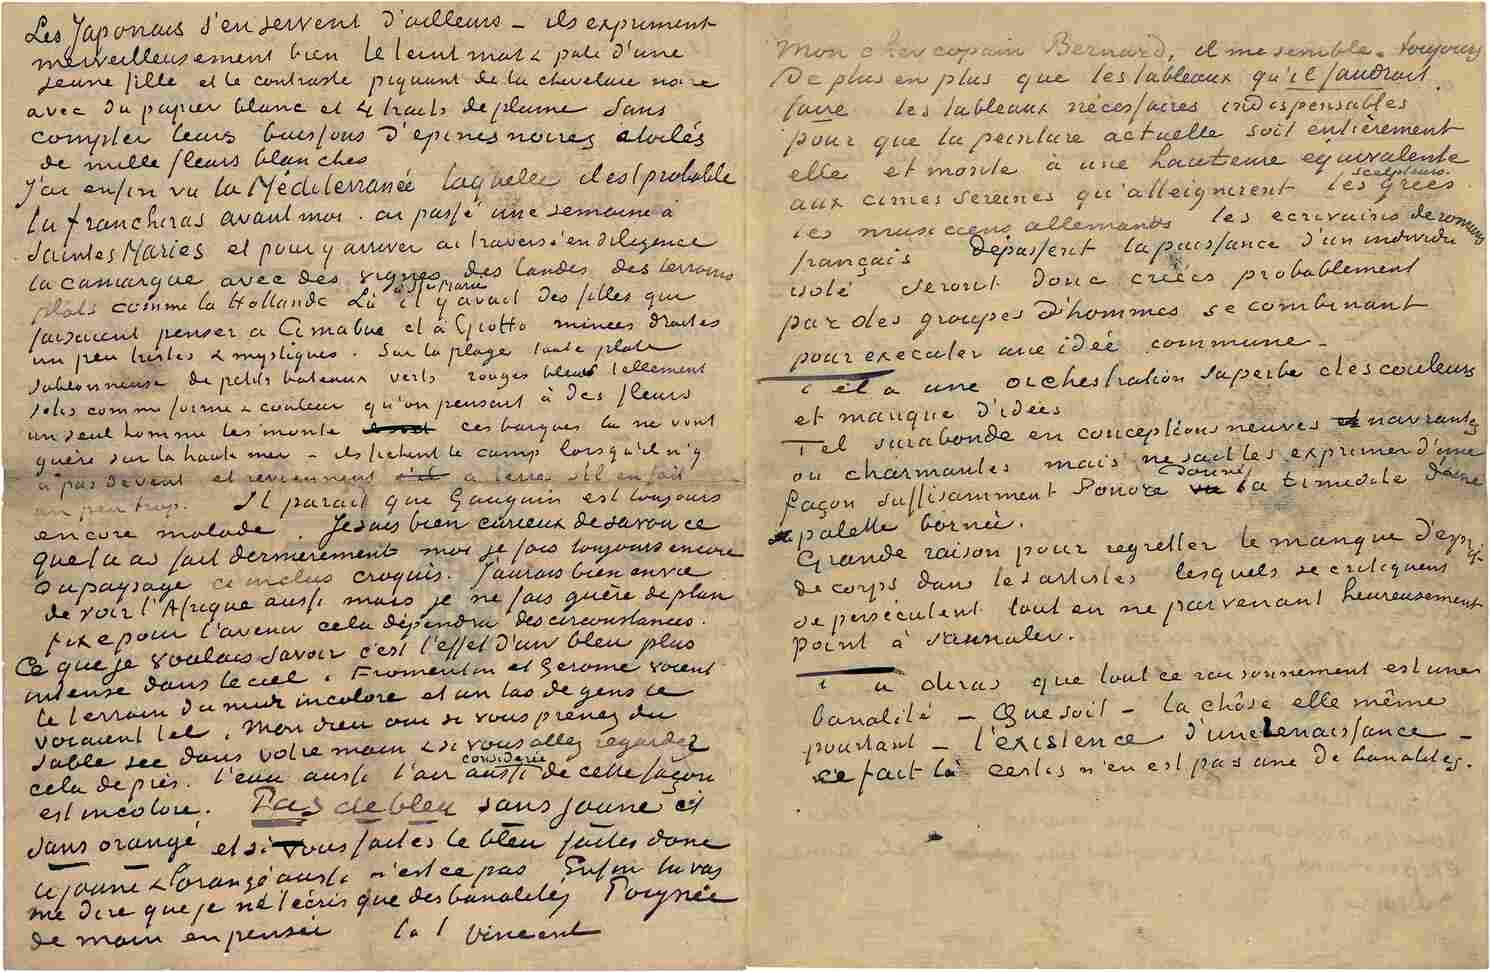 Les Japonais s'en servent d'ailleurs – ils expriment
merveilleusement bien le teint mat & pale d'une
jeune fille et le contraste piquant de la chevelure noire
avec du papier blanc et 4 traits de plume Sans
compter leurs buissons d'epines noires etoilés
de mille fleurs blanches
J'ai enfin vu la Méditerranée laquelle il est probable
tu franchiras avant moi. ai passé une semaine à
Saintes Maries et pour y arriver ai traversé en diligence
la camargue avec des vignes, des landes, des terrains
plats comme la Hollande Là à Stes Maries il y avait des filles qui
faisaient penser à Cimabue et à Giotto minces droites
un peu tristes & mystiques. Sur la plage toute plate
sablonneuse de petits bateaux verts rouges bleus tellement
jolis comme forme & couleur qu'on pensait à des fleurs
un seul homme les monte ces barques la ne vont
guère sur la haute mer – ils fichent le camp lorsqu'il n'y
a pas de vent et reviennent a terre s'il en fait
un peu trop. Il parait que Gauguin est toujours
encore malade. Je suis bien curieux de savoir ce
que tu as fait dernierement moi je fais toujours encore
du paysage ci inclus croquis. J'aurais bien envie
de voir l'Afrique aussi mais je ne fais guère de plan
fixe pour l'avenir cela dépendra des circonstances.
Ce que je voulais savoir c'est l'effet d'un bleu plus
intense dans le ciel. Fromentin et Gerome voient
le terrain du midi incolore et un tas de gens le
voiaient tel. Mon dieu oui si vous prenez du
sable sec dans votre main & si vous allez regarder
cela de près. l'eau aussi l'air aussi considéré de cette façon
est incolore. Pas de bleu sans jaune et
sans orangé et si vous faites le bleu faites donc
le jaune & l'orangé aussi n'est ce pas Enfin tu vas
me dire que je ne t'écris que des banalités Poignée
de main en pensée t. à t. Vincent
Mon cher copain Bernard, il me semble toujours
de plus en plus que les tableaux qu'il faudrait
faire les tableaux nécessaires indispensables
pour que la peinture actuelle soit entièrement
elle et monte à une hauteur équivalente
aux cimes sereines qu'atteignirent les sculpteurs grecs
les musiciens allemands les ecrivains de romans
français dépassent la puissance d'un individu
isolé seront donc créés probablement
par des groupes d'hommes se combinant
pour executer une idée commune –
Tel a une orchestration superbe des couleurs
et manque d'idées
Tel surabonde en conceptions neuves navrantes
ou charmantes mais ne sait les exprimer d'une
façon suffisamment sonore donné la timidité d'une
palette bornée.
Grande raison pour regretter le manque d'esprit
de corps dans les artistes lesquels se critiquent
se persécutent tout en ne parvenant heureusement
point à s'annuler.
Tu diras que tout ce raisonnement est une
banalité – Que soit – la chôse elle même
pourtant – l'existence d'une Renaissance –
ce fait là certes n'en est pas une de banalités.